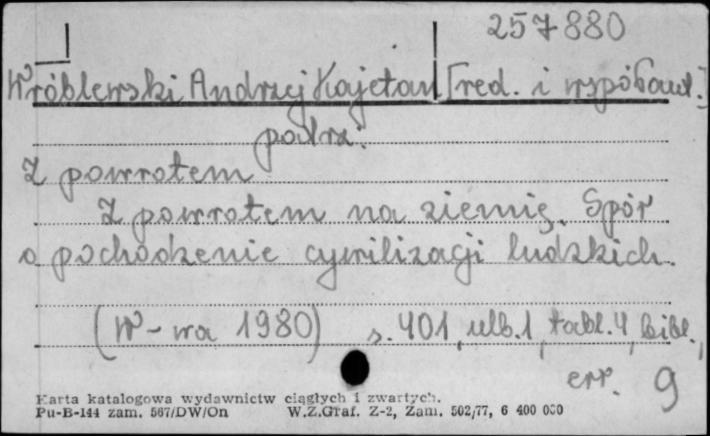 257880
Wróblewski Andrzej Kajetan [red. i współaut.]
patrz:
Z powrotem
Z powrotem na ziemię. Spór
o pochodzenie cywilizacji ludzkich.
(W-wa 1980) s. 401, nlb.1, tabl.4, bibl.,
err. 9
Karta katalogowa wydawnictw ciągłych i zwartych.
Pu-B-144 zam. 567/DW/On W.Z.Graf. Z-2, Zam. 502/77, 6 400 000